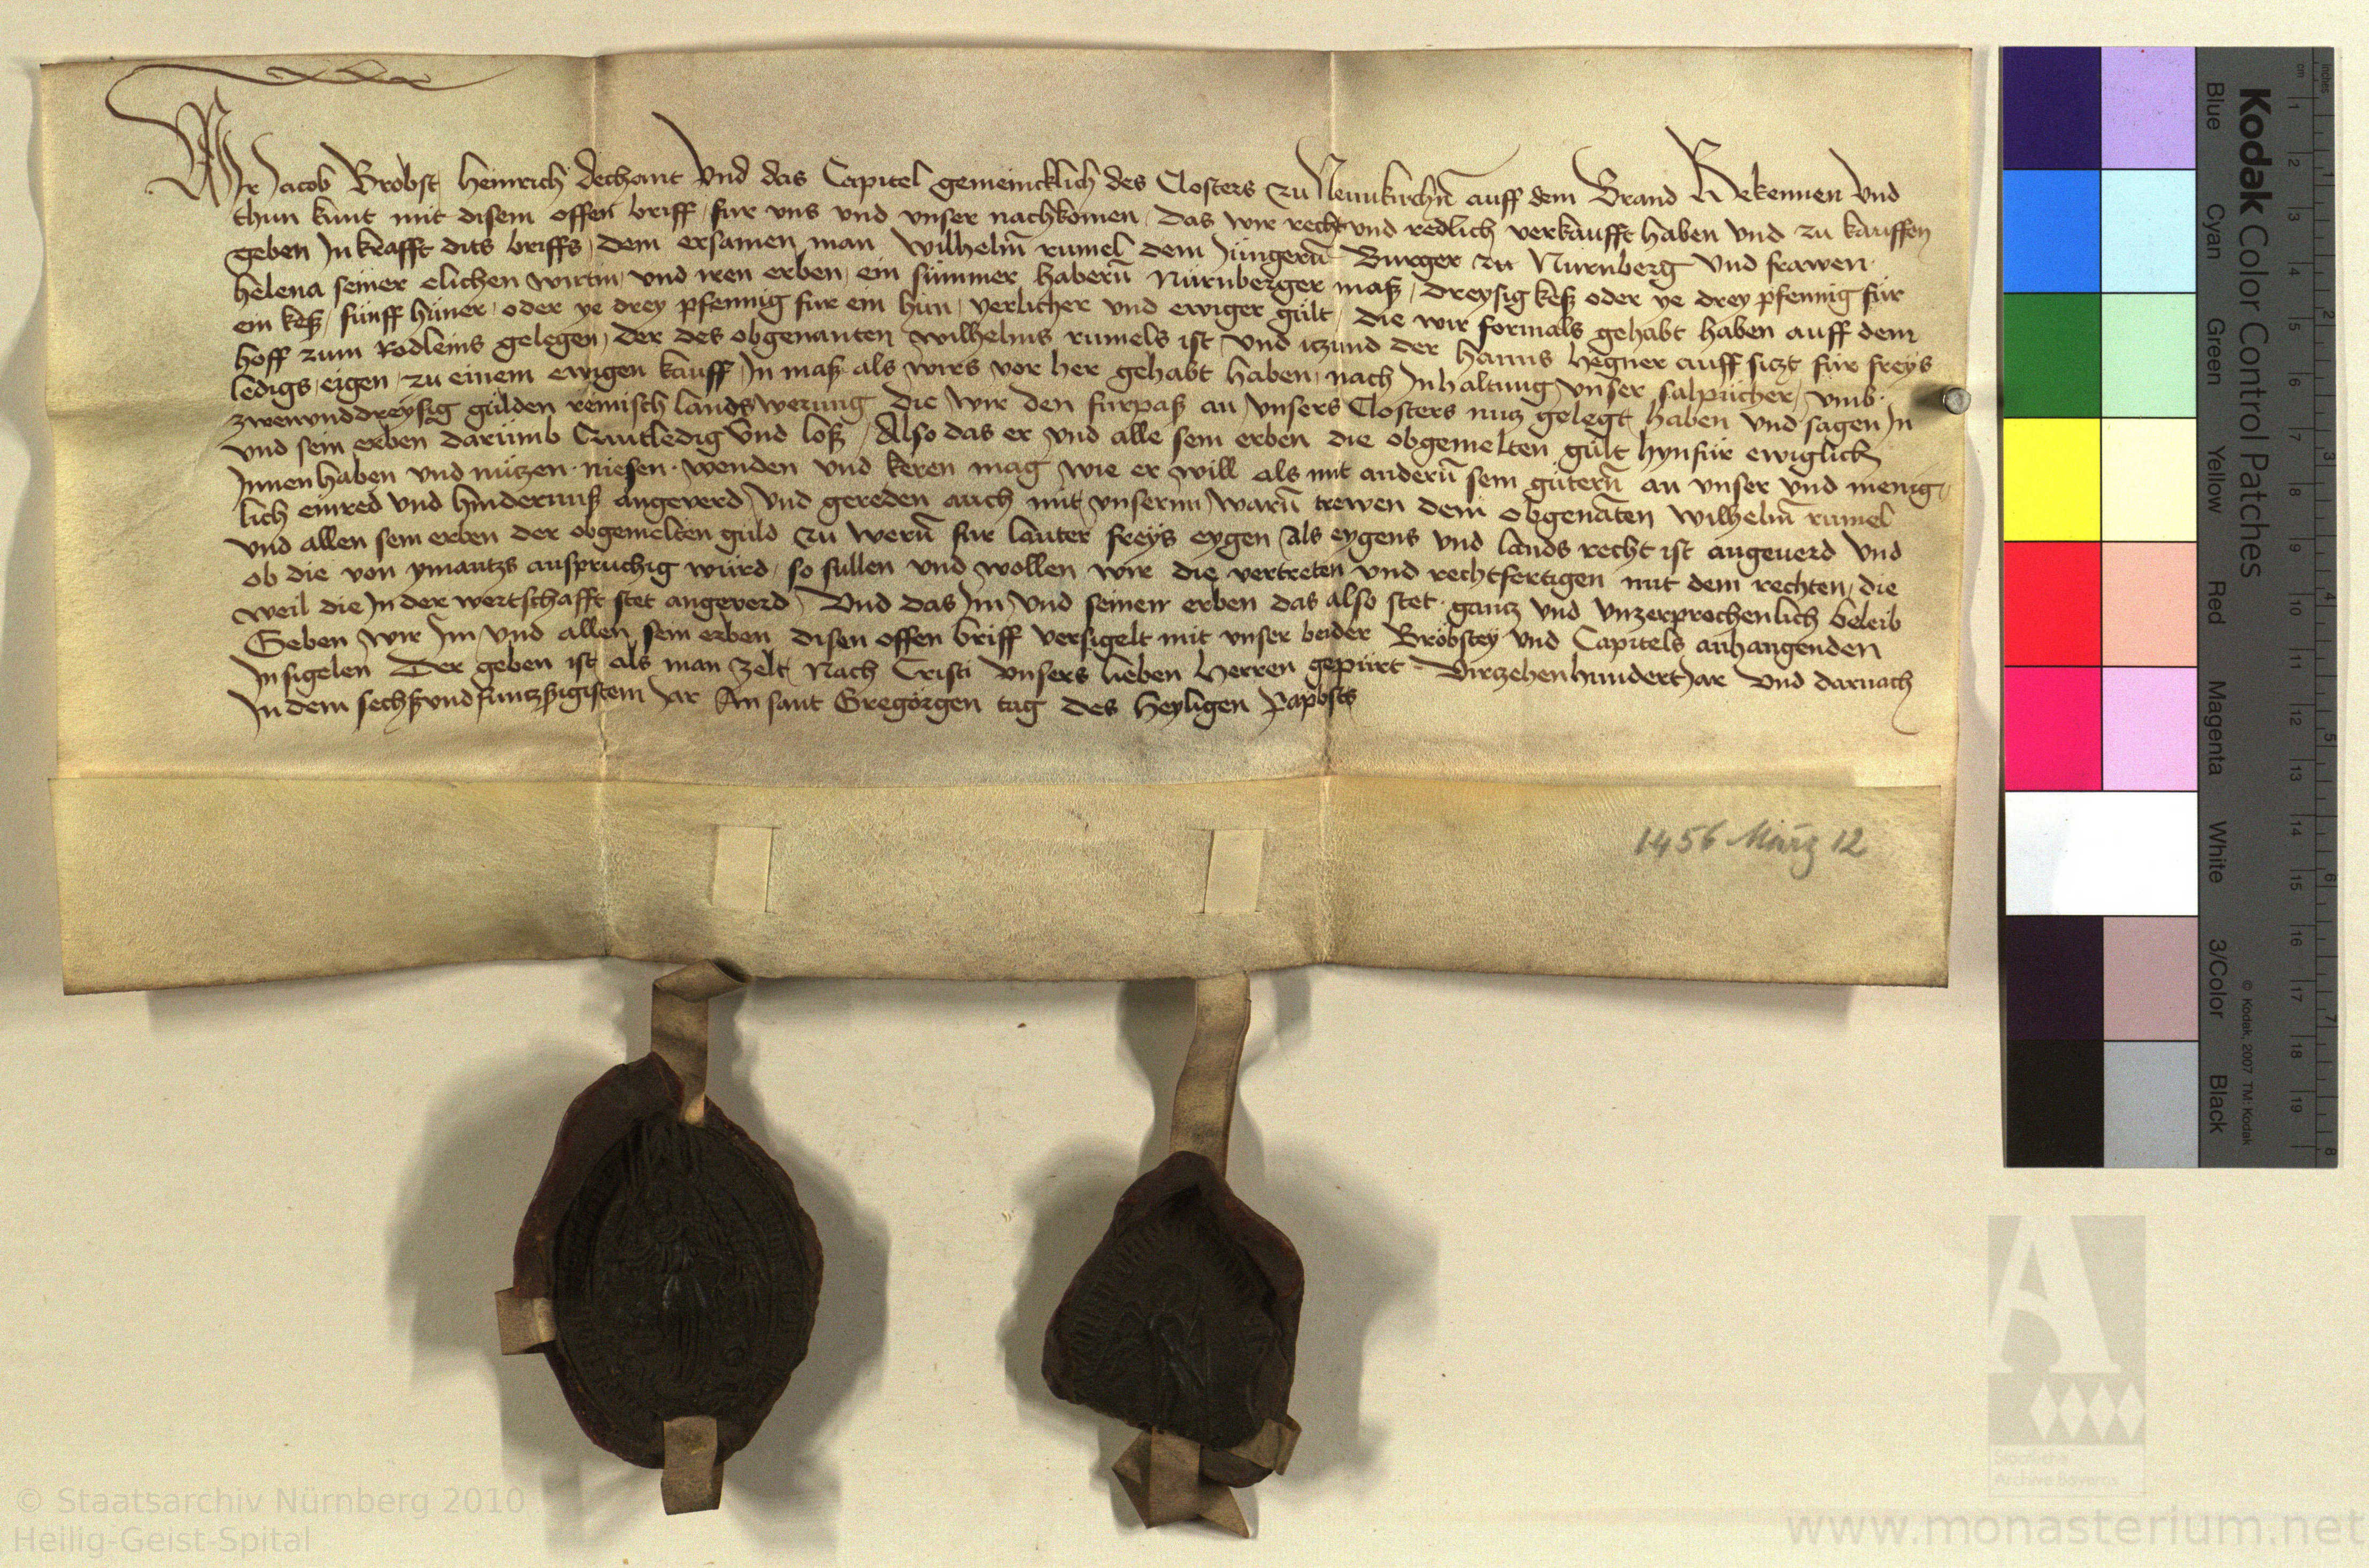 Wir Jacob Brobst Heinrich dechant Vnd das Capitel gemeincklich des Closters zu Neunkirchñ auff dem Brand Bekennen Vnd
thun kunt mit disem offen briff / fur vns vnd vnser nachkomen / Das wir recht vnd redlich verkaufft haben vnd zu kauffen
geben In krafft dits briffs / dem ersamen man Wilhelm̄ rumel dem Jüngerñ Burger zu Nurnberg Vnd frawen
helena seiner elichen wirtin / vnd iren erben / ein sümmer haberñ Nürnberger maß / Dreysig keß oder ye drey pfennig für
ein keß / fünff hüner / oder ye drey pfennig fur ein hun / yerlicher vnd ewiger gült / Die wir formals gehabt haben auff dem
hoff zum Rodleins gelegen / Der des obgenanten Wilhelms rumels ist / Vnd itzund der Hanns Hegner auff siczt für freys
ledigs / eigen / zu einem ewigen kauff / In maß als wirs vor her gehabt haben / nach Inhaltung vnser salpücher / vmb
zwenvnddreysig gülden reinisch landswerung Die wir den fürpaß an vnsers Closters nutz gelegt haben Vnd sagen In
vnd sein erben darümb Quitledig vnd loß / Also das er vnd alle sein erben die obgemelten gült hynfür ewiglich
Innenhaben vnd nützen niesen wenden vnd keren mag wie er will als mit anderñ sein güterñ an vnser vnd menig
lich einred vnd hindernuß angeverd / Vnd gereden auch mit vnsernn warñ trewen dem obgenāten Wilhelm̄ rumel
vnd allen sein erben der obgemelten güld zu werñ für lauter freys eygen / als eygens vnd lands recht ist angeuerd Vnd
ob die von ymantzs anspruchig würd / so sullen vnd wollen wir die vertreten vnd rechtfertigen mit dem rechten / die
weil die In der wertschafft stet angeverd / Vnd das Im vnd seinen erben das also stet gantz vnd vnzerprochenlich beleib
Geben wir Im vnd allen sein erben disen offen briff versigelt mit vnser beider Bröbstey vnd Capitels anhangenden
Insigelen Der geben ist als man zelt Nach Cristi Vnsers lieben Herren gepürt Virzehenhundert Jar Vnd darnach
In dem sechßvndfuntzsigistem Jar An sant Gregörgen tag des Heyligen Papbsts
1456 März 12
Kodak Color Control Patches
Blue Cyan Green Yellow Red Magenta White 3/Color Black
© Kodak, 2007 TM: Kodak
inches 1 2 3 4 5 6 7 8
cm 1 2 3 4 5 6 7 8 9 10 11 12 13 14 15 16 17 18 19
Staatliche
Archive Bayerns
© Staatsarchiv Nürnberg 2010
Heilig-Geist-Spital
www.monasterium.net